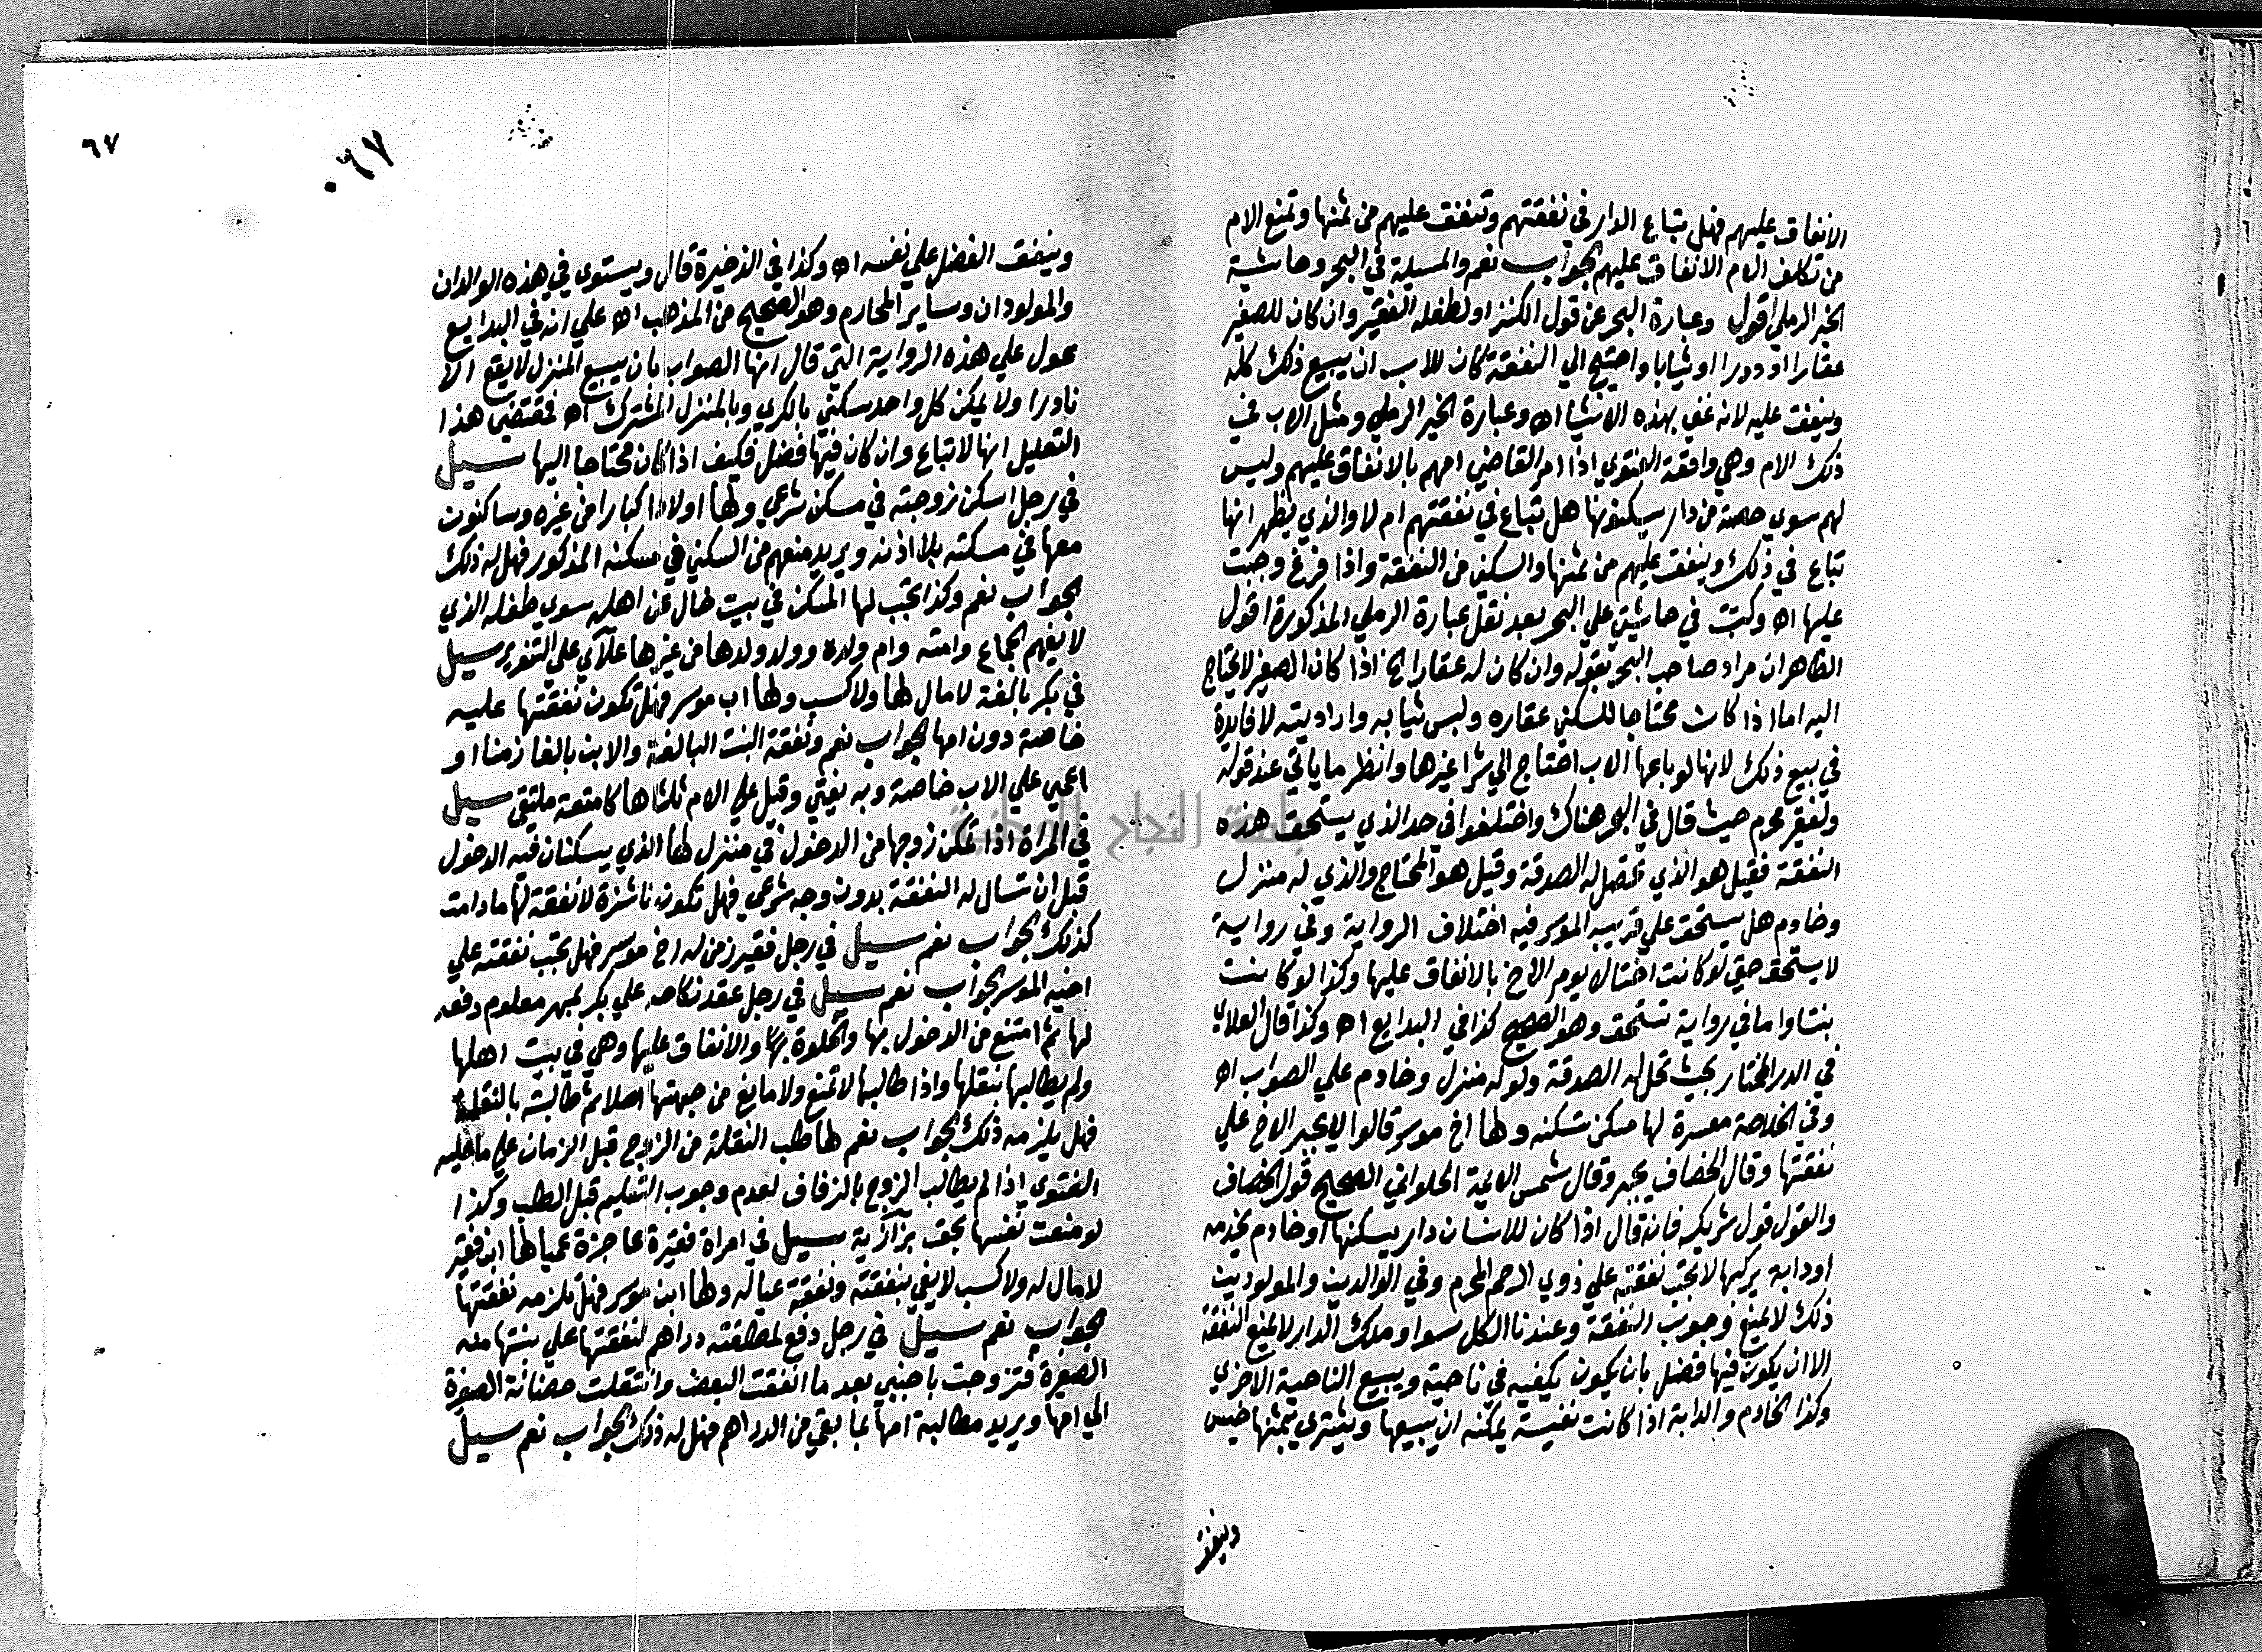 الانفاق عليهم فهل تباع الدار في نفقتهم وتنفق عليهم من ثمنها وتمنع الام
من تكلف الام الانفاق عليهم الجواب نعم والمسيلة في البحر وحاشية
الخير الرملي اقول وعبارة البحر عن قول الكنز او لطفله الفقير وان كان للصغير
عقارا او دورا او ثيابا واحتيج الي النفقة كان للاب ان يبيع ذلك كله
وينفق عليه لانه غني بهذه الاشيا اه وعبارة الخير الرملي ومثل الاب في
ذلك الام وهي واقعة الفتوي اذا امر القاضي امهم بالانفاق عليهم وليس
لهم سوي حصة من دار يسكنونها هل تباع في نفقتهم ام لا والذي يظهر انها
تباع في ذلك وينفق عليهم من ثمنها والسكني من النفقة واذا فرغ وجبت
عليها اه وكتبت في حاشيتي علي البحر بعد نقل عبارة الرملي المذكورة اقول
الظاهر ان مراد صاحب البحر بقوله وان كان له عقارا الخ اذا كان الصغير لا يحتاج
اليه اما اذا كان محتاجا للسكني عقاره ولبس ثيابه واراد بيته لا فايدة
في بيع ذلك لانها لو باعها الاب احتاج الي شرا غيرها وانظر ما ياتي عند قوله
ولفقير محرم حيث قال في البحر هناك واختلفوا في حد الذي يستحق هذه
النفقة فقيل هو الذي تحل له الصدقة وقيل هو المحتاج والذي له منزل
وخادم هل يستحق علي قريبه الموسر فيه اختلاف الرواية وفي رواية
لا يستحق حتي لو كانت اختا لا يومر الاخ بالانفاق عليها وكذا لو كانت
بنتا واما في رواية تستحق وهو الصحيح كذا في البدايع اه وكذا قال العلاي
في الدر المختار بحيث تحل له الصدقة ولو له منزل وخادم علي الصواب اه
وفي الخلاصة معسرة لها مسكن تسكنه ولها اخ موسر قالوا لا يجبر الاخ علي
نفقتها وقال الخصاف يجبر وقال شمس الايمة الحلواني الصحيح قول الخصاف
والقول قول شريك فانه قال اذا كان للانسان دار يسكنها او خادم يخدمه
او دابه يركبها لا تجب نفقته علي ذوي الرحم المحرم وفي الوالدين والمولودين
ذلك لا يمنع وجوب النفقة وعندنا الكل سوا وملك الدار لا يمنع النفقة
الا ان يكون فيها فضل بان يكون يكفيه في ناحية ويبيع الناحية الاخري
وكذا الخادم والدابة اذا كانت نفيسة يمكنه ان يبيعها ويشتري بثمنها خسيس
وينفق
٦٧
٠٦٧
وينفق الفضل علي نفسه اه وكذا في الذخيرة قال ويستوي في هذه الوالدان
والمولودان وساير المحارم وهو الصحيح من المذهب اه علي انه في البدايع
عول علي هذه الرواية التي قال انها الصواب بان بيع المنزل لا يقع الا
نادرا ولا يمكن كل واحد سكني بالكري وبالمنزل المشترك اه فمقتضي هذا
التعليل انها لا تباع وان كان فيها فضل فكيف اذا كان محتاجا اليها سيل
في رجل اسكن زوجته في مسكن شرعي ولها اولادا كبارا من غيره وساكنون
معها في مسكنه بلا اذنه ويريد منعهم من السكني في مسكنه المذكور فهل له ذلك
الجواب نعم وكذا تجب لها السكن في بيت خال عن اهله سوي طفله الذي
لا يفهم الجماع وامته وام ولده وولد ولدها من غيرها علاي علي التنوير سيل
في بكر بالغة لا مال لها ولا كسب ولها اب موسر فهل تكون نفقتها عليه
خاصة دون امها الجواب نعم ونفقة البنت البالغة والابن بالغا زمنا او
اعمي علي الاب خاصة وبه يفتي وقيل علي الام ثلثها كامتعة ملتقي سيل
في المراة اذا تمكن زوجها من الدخول في منزل لها الذي يسكنان فيه الدخول
قبل ان تسال له النفقة بدون وجه شرعي فهل تكون ناشزة لا نفقة لها مادامت
كذلك الجواب نعم سيل في رجل فقير زمن له اخ موسر فهل تجب نفقته علي
اخيه الموسر الجواب نعم سيل في رجل عقد نكاحه علي بكر بمهر معلوم دفعه
لها ثم امتنع من الدخول بها والخلوة بها والانفاق عليها وهي في بيت اهلها
ولم يطالبها بنقلها واذا طالبها لا تمنع ولا مانع من جهتها اصلا ثم طالبته بالنقلة
فهل يلزمه ذلك الجواب نعم لها طلب النقلة من الزوج قبل الزمان علي ما عليه
الفتوي اذا لم يطالب الزوج بالزفاف لعدم وجوب التسليم قبل الطلب وكذا
لو منعت نفسها بحق بزازية سيل في امراة فقيرة عاجزة عمياها ابن فقير
لا مال له ولا كسب لا يفي بنفقته ونفقة عياله ولها ابن موسر فهل تلزمه نفقتها
الجواب نعم سيل في رجل دفع لمطلقته دراهم لنفقتها علي بنتها منه
الصغيرة فتزوجت باجنبي بعد ما انفقت البعض وانتقلت حضانة الصغيرة
الي امها ويريد مطالبة امها بما بقي من الدراهم فهل له ذلك الجواب نعم سيل